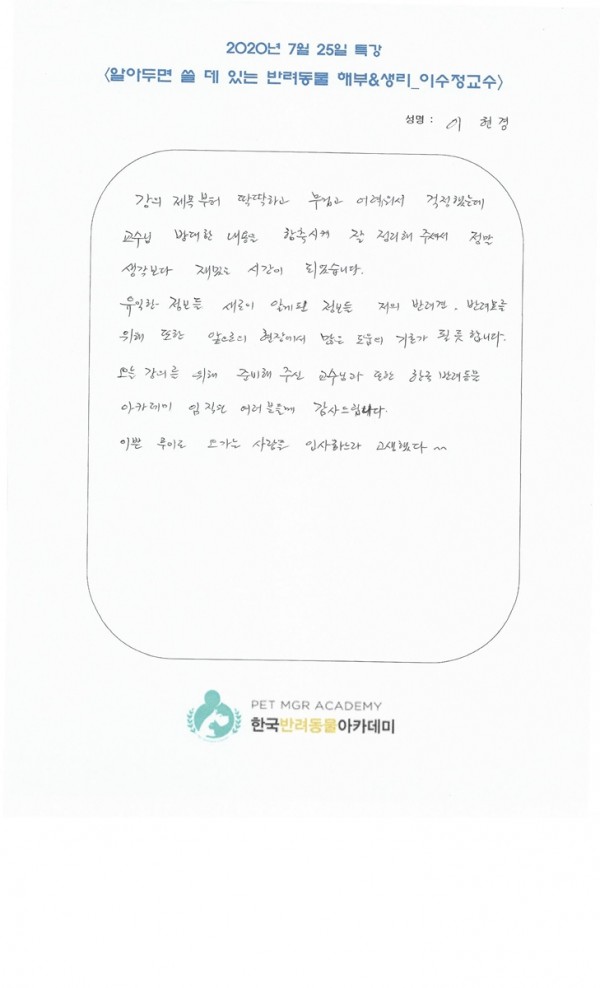 2020년 7월 25일 특강
<알아두면 쓸 데 있는 반려동물 해부&생리_이수정교수>
성명 : 이 현 경
강의 제목부터 딱딱하고 무겁고 어려워서 걱정했는데
교수님 방대한 내용을 함축시켜 잘 정리해 주셔서 정말
생각보다 재밌는 시간이 되었습니다.
유익한 정보들 새로이 알게된 정보들 저의 반려견, 반려묘를
위해 또한 앞으로의 현장에서 많은 도움의 기로가 될듯합니다.
오늘 강의를 위해 준비해 주신 교수님과 또한 한국 반려동물
아카데미 임직원 여러분들께 감사드립니다.
이쁜 오가는 사람들 인사하느라 고생했다 ^^
PET MGR ACADEMY
한국반려동물아카데미